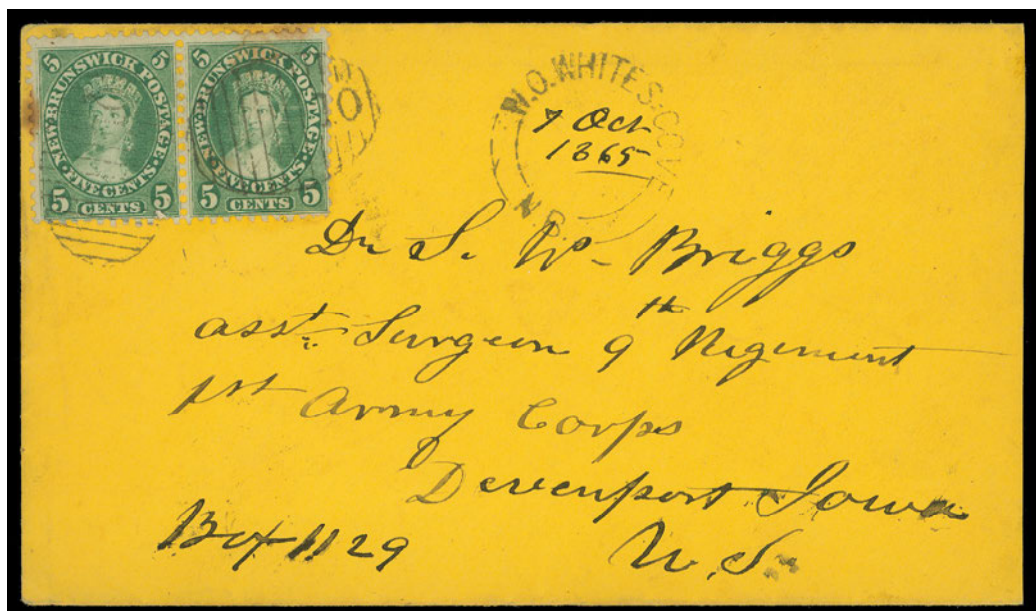 5 NEW·BRUNSWICK POSTAGE· 5
·FIVE CENTS·
5 CENTS 5
5 NEW·BRUNSWICK POSTAGE· 5
·FIVE CENTS·
5 CENTS 5
W.O. WHITES-COVE
7 Oct
1865
N.B.
Dr S. W. Briggs
asst. Surgeon 9th Regiment
1st Army Corps
Devenport Iowa
Box 1129
U.S.